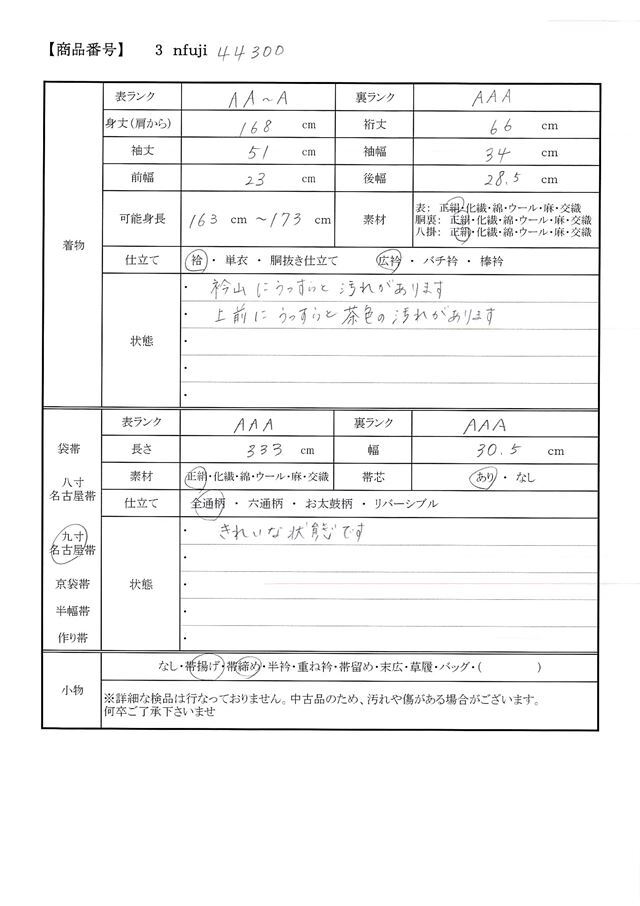 【商品番号】 3 nfuji 44300
表ランク AA～A 裏ランク AAA
身丈(肩から) 168 cm 裄丈 66 cm
袖丈 51 cm 袖幅 34 cm
前幅 23 cm 後幅 28.5 cm
可能身長 163 cm ～173 cm 素材
表: 正絹・化繊・綿・ウール・麻・交織
胴裏: 正絹・化繊・綿・ウール・麻・交織
八掛: 正絹・化繊・綿・ウール・麻・交織
着物
仕立て 袷・単衣・胴抜き仕立て 広衿・バチ衿・棒衿
状態
・ 衿山にうっすらと汚れがあります
・ 上前にうっすらと茶色の汚れがあります
・
・
・
表ランク AAA 裏ランク AAA
袋帯 長さ 333 cm 幅 30.5 cm
八寸
名古屋帯
素材 正絹・化繊・綿・ウール・麻・交織 帯芯 あり・なし
仕立て 全通柄・六通柄・お太鼓柄・リバーシブル
九寸
名古屋帯
京袋帯
半幅帯
作り帯
状態
・ きれいな状態です
・
・
・
・
小物
なし・帯揚げ・帯締め・半衿・重ね衿・帯留め・末広・草履・バッグ・( )
※詳細な検品は行なっておりません。中古品のため、汚れや傷がある場合がございます。
何卒ご了承下さいませ